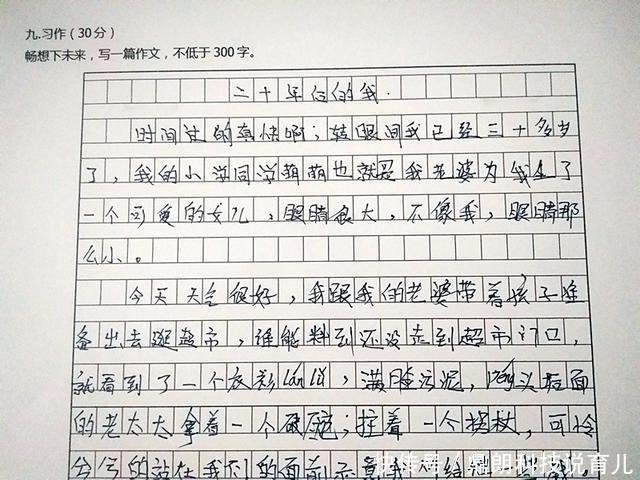 九.习作（30分）
畅想下未来，写一篇作文，不低于300字。
二十年后的我.
时间过的真快啊；转眼间我已经三十多岁
了，我的小学同学萌萌也就是我老婆为我生了
一个可爱的女儿，眼睛很大，不像我，眼睛那
么小。
今天天气很好，我跟我的老婆带着孩子准
备出去逛超市，谁能料到还没走到超市门口，
就看到了一个衣衫lán lǚ，满脸污泥，头后面
的老太太拿着一个破碗；拄着一个拐杖，可怜
兮兮的站在我们的面前示意我们给
快传号/鼎朗科技说育儿